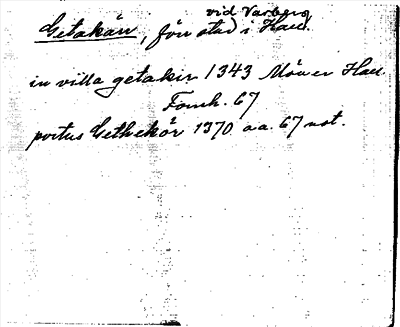 vid Varberg
Getakärr, förr stad i Hall.
in villa getakir 1343 Möver Hall.
Fornh. 67
portus Gethekör 1370 aa. 67 not.